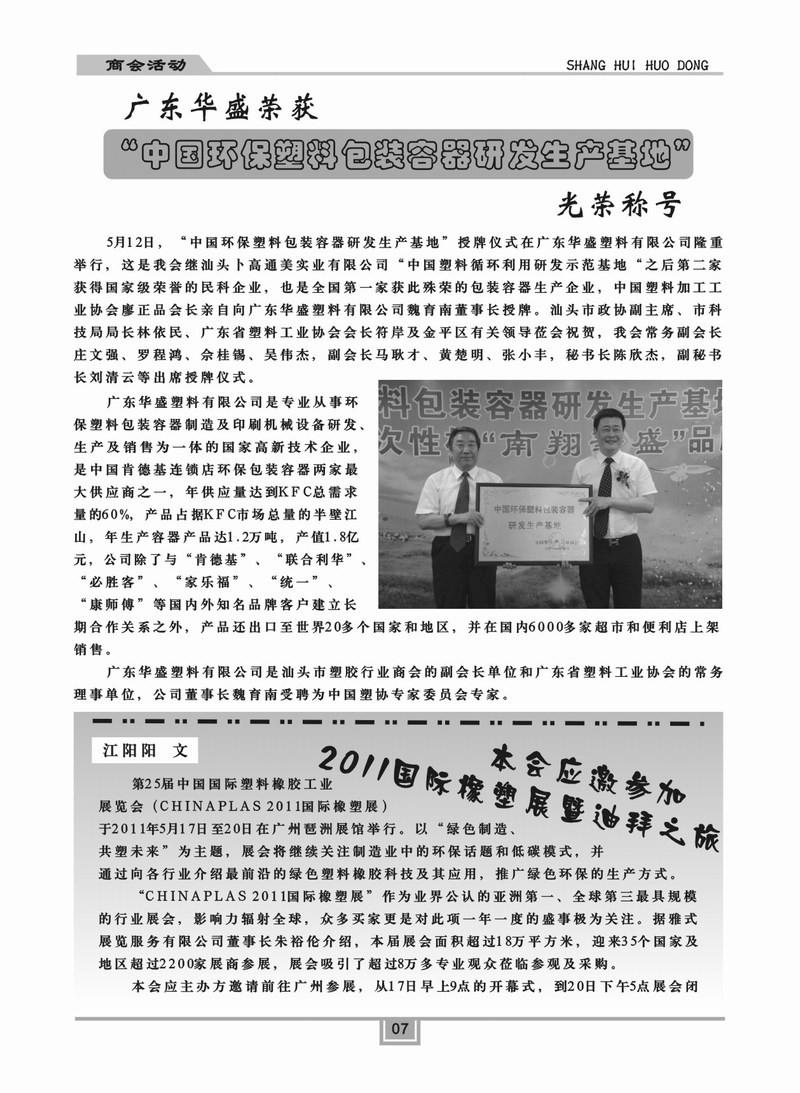 商会活动
SHANG HUI HUO DONG
广东华盛荣获
“中国环保塑料包装容器研发生产基地”
光荣称号
5月12日，“中国环保塑料包装容器研发生产基地”授牌仪式在广东华盛塑料有限公司隆重
举行，这是我会继汕头卜高通美实业有限公司“中国塑料循环利用研发示范基地“之后第二家
获得国家级荣誉的民科企业，也是全国第一家获此殊荣的包装容器生产企业，中国塑料加工工
业协会廖正品会长亲自向广东华盛塑料有限公司魏育南董事长授牌。汕头市政协副主席、市科
技局局长林依民、广东省塑料工业协会会长符岸及金平区有关领导莅会祝贺，我会常务副会长
庄文强、罗程鸿、佘桂锡、吴伟杰，副会长马耿才、黄楚明、张小丰，秘书长陈欣杰，副秘书
长刘清云等出席授牌仪式。
广东华盛塑料有限公司是专业从事环
保塑料包装容器制造及印刷机械设备研发、
生产及销售为一体的国家高新技术企业，
是中国肯德基连锁店环保包装容器两家最
大供应商之一，年供应量达到KFC总需求
量的60%，产品占据KFC市场总量的半壁江
山，年生产容器产品达1.2万吨，产值1.8亿
元，公司除了与“肯德基”、“联合利华”、
“必胜客”、“家乐福”、“统一”、
“康师傅”等国内外知名品牌客户建立长
期合作关系之外，产品还出口至世界20多个国家和地区，并在国内6000多家超市和便利店上架
销售。
料包装容器研发生产基地
次性 “南翔 盛”品
中国环保塑料包装容器
研发生产基地
广东华盛塑料有限公司是汕头市塑胶行业商会的副会长单位和广东省塑料工业协会的常务
理事单位，公司董事长魏育南受聘为中国塑协专家委员会专家。
江阳阳 文
本会应邀参加
2011国际橡塑展暨迪拜之旅
第25届中国国际塑料橡胶工业
展览会（CHINAPLAS 2011国际橡塑展）
于2011年5月17日至20日在广州琶洲展馆举行。以“绿色制造、
共塑未来”为主题，展会将继续关注制造业中的环保话题和低碳模式，并
通过向各行业介绍最前沿的绿色塑料橡胶科技及其应用，推广绿色环保的生产方式。
“CHINAPLAS 2011国际橡塑展”作为业界公认的亚洲第一、全球第三最具规模
的行业展会，影响力辐射全球，众多买家更是对此项一年一度的盛事极为关注。据雅式
展览服务有限公司董事长朱裕伦介绍，本届展会面积超过18万平方米，迎来35个国家及
地区超过2200家展商参展，展会吸引了超过8万多专业观众莅临参观及采购。
本会应主办方邀请前往广州参展，从17日早上9点的开幕式，到20日下午5点展会闭
07